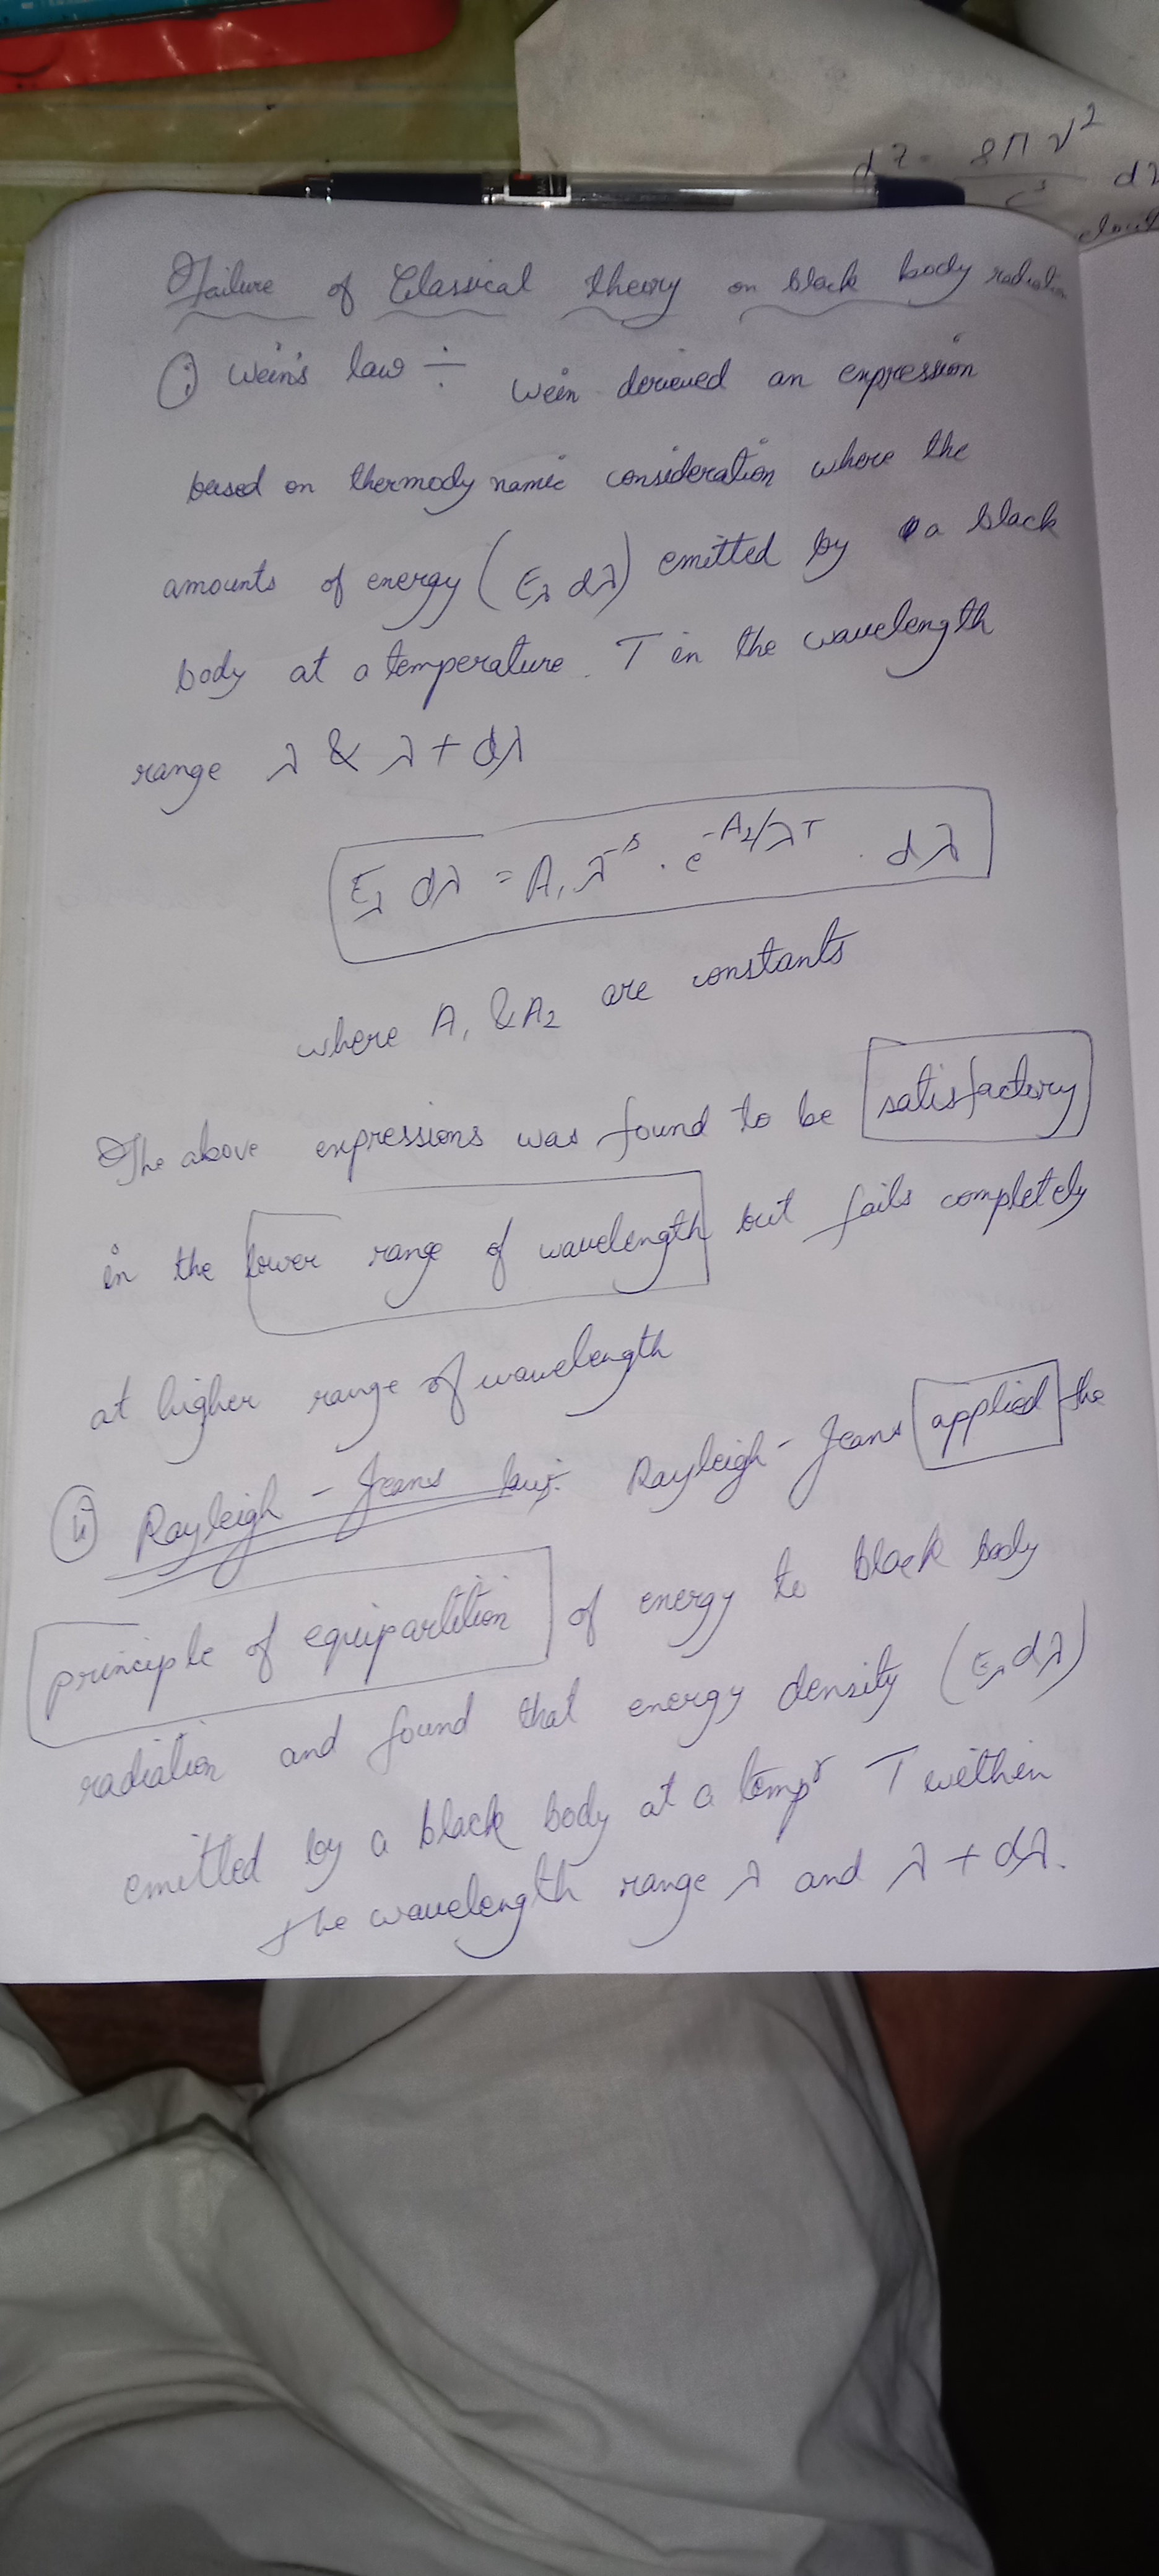 8πν²
c³
Failure of Classical theory on black body radiation
(i) Wein's law ÷ Wein derieved an expression
based on thermodynamic consideration where the
amounts of energy (Eλ dλ) emitted by a black
body at a temperature T in the wavelength
range λ & λ + dλ
Eλ dλ = A₁ λ⁻⁵ . e^(-A₂/λT) . dλ
where A₁ & A₂ are constants
The above expressions was found to be satisfactory
in the lower range of wavelength but fails completely
at higher range of wavelength
(ii) Rayleigh - Jeans law: Rayleigh - Jeans applied the
principle of equipartition of energy to black body
radiation and found that energy density (Eλ dλ)
emitted by a black body at a tempr T within
the wavelength range λ and λ + dλ.